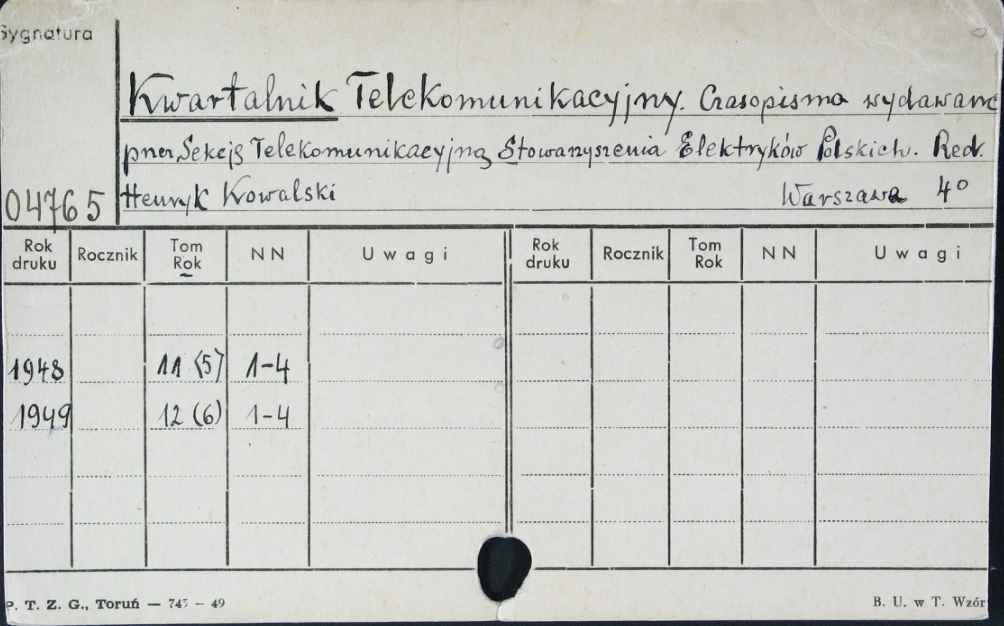 Sygnatura
Kwartalnik Telekomunikacyjny. Czasopismo wydawane
przez Sekcję Telekomunikacyjną Stowarzyszenia Elektryków Polskich. Red.
04765 Henryk Kowalski Warszawa 4°
Rok druku Rocznik Tom Rok NN Uwagi Rok druku Rocznik Tom Rok NN Uwagi
1948 11 (5) 1-4
1949 12 (6) 1-4
P. T. Z. G., Toruń — 745 — 49 B. U. w T. Wzór